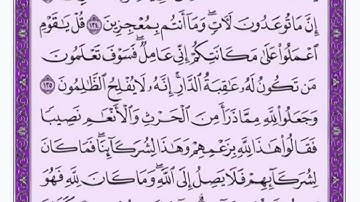 إِنَّ مَا تُوعَدُونَ لَآتٍ ۖ وَمَا أَنتُم بِمُعْجِزِينَ ١٣٤ قُلْ يَا قَوْمِ
اعْمَلُوا عَلَىٰ مَكَانَتِكُمْ إِنِّي عَامِلٌ ۖ فَسَوْفَ تَعْلَمُونَ
مَن تَكُونُ لَهُ عَاقِبَةُ الدَّارِ ۗ إِنَّهُ لَا يُفْلِحُ الظَّالِمُونَ ١٣٥
وَجَعَلُوا لِلَّهِ مِمَّا ذَرَأَ مِنَ الْحَرْثِ وَالْأَنْعَامِ نَصِيبًا
فَقَالُوا هَٰذَا لِلَّهِ بِزَعْمِهِمْ وَهَٰذَا لِشُرَكَائِنَا ۖ فَمَا كَانَ
لِشُرَكَائِهِمْ فَلَا يَصِلُ إِلَى اللَّهِ ۖ وَمَا كَانَ لِلَّهِ فَهُوَ